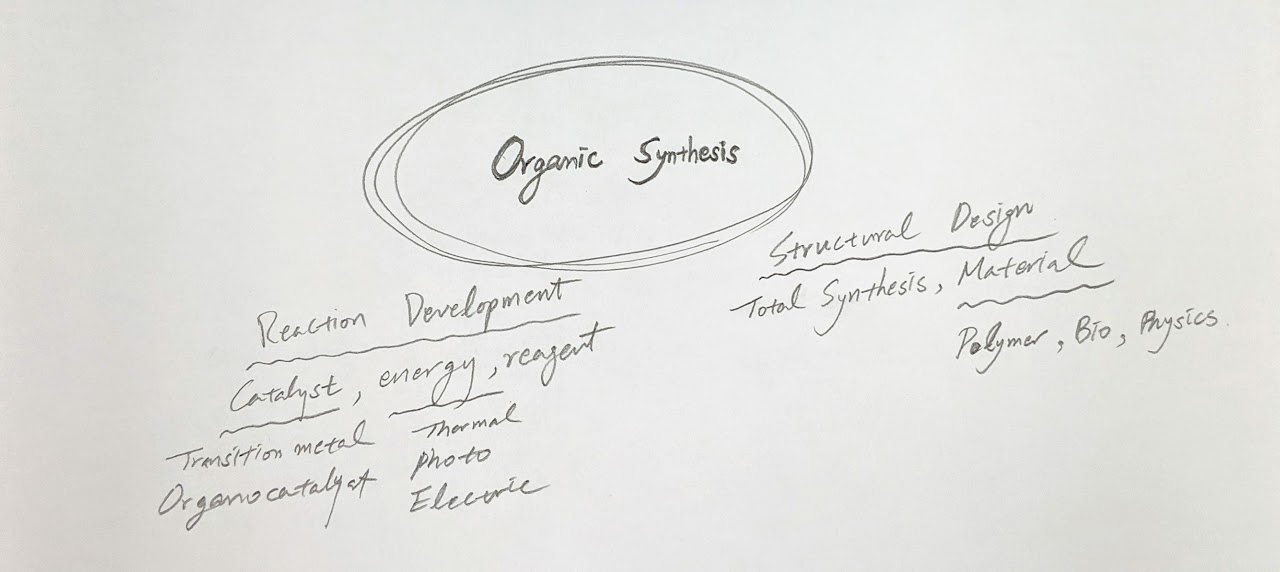 Organic Synthesis
Structural Design
Total Synthesis, Material
Polymer, Bio, Physics.
Reaction Development
Catalyst, energy, reagent
Transition metal Thermal
Organocatalyst photo
Electric